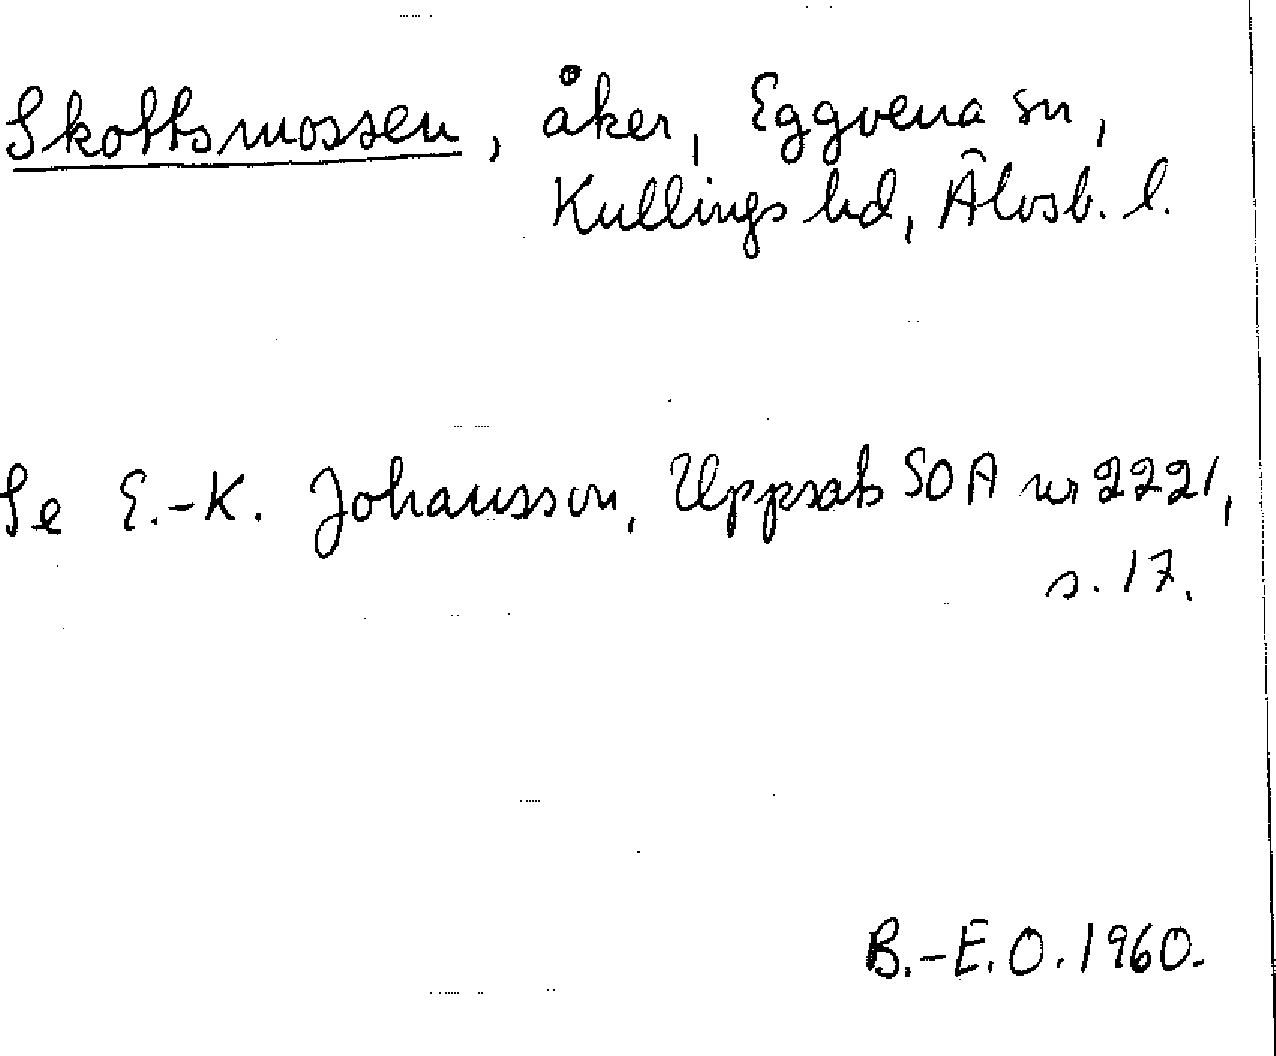 Skottsmossen, åker, Eggvena sn,
Kullings hd, Älvsb. l.
Se E.-K. Johansson, Uppsats SOA nr 2221,
s. 17.
B.-E.O. 1960.